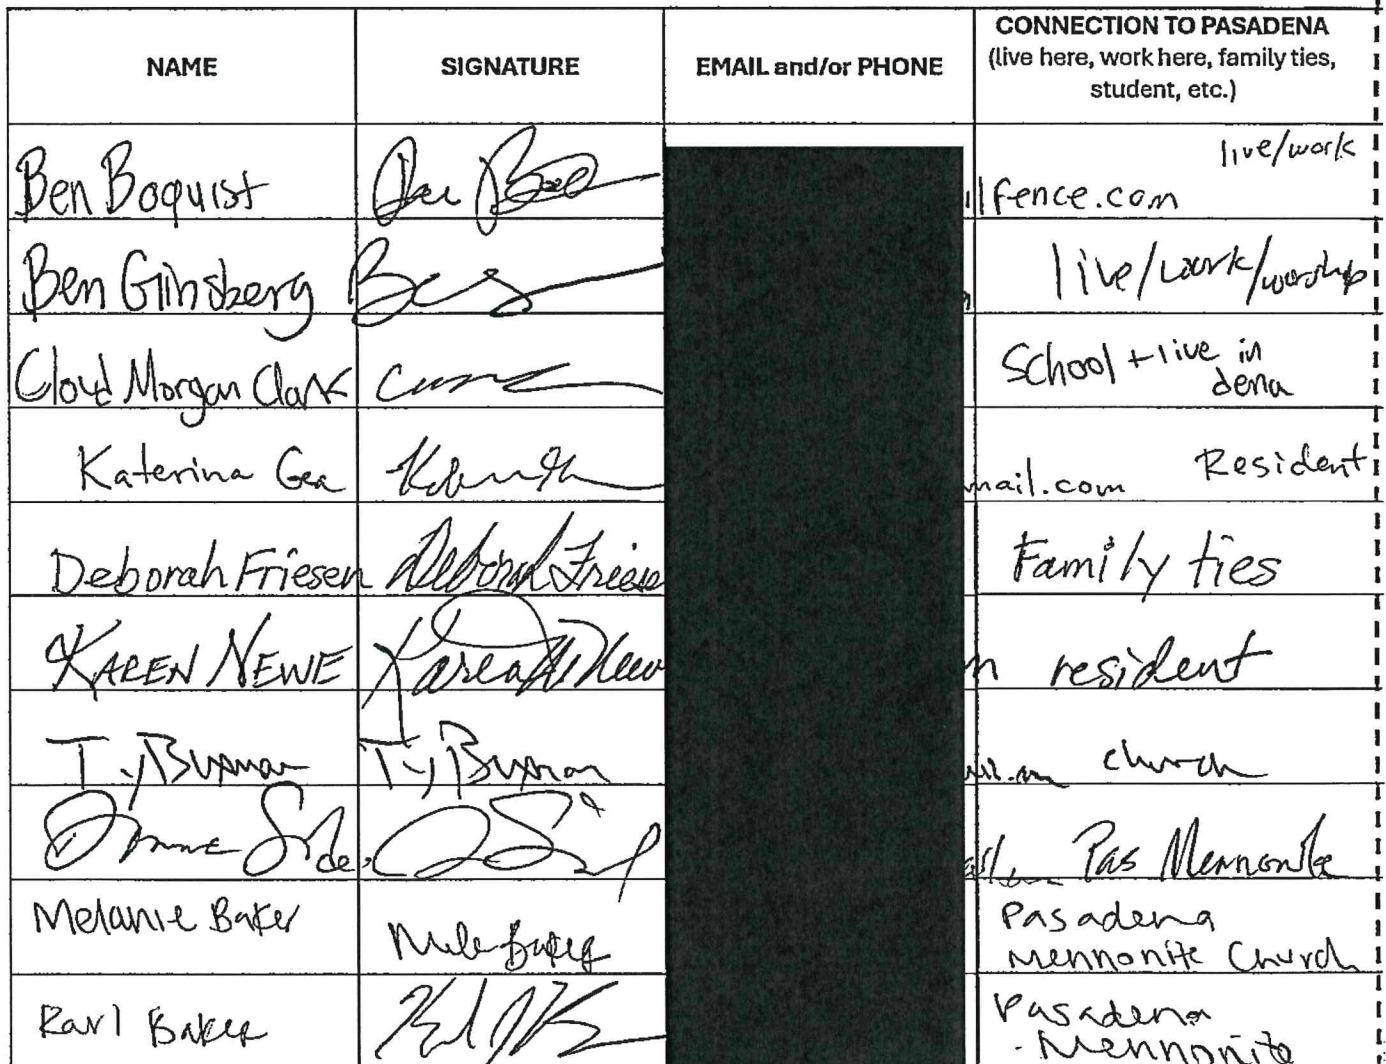 NAME SIGNATURE EMAIL and/or PHONE CONNECTION TO PASADENA
(live here, work here, family ties,
student, etc.)
Ben Boquist live/work
lfence.com
Ben Ginsberg live/work/worship
Cloyd Morgan Clark School + live in
dena
Katerina Gea mail.com Resident
Deborah Friesen Deborah Friese Family ties
KAREN NEWE Karen New resident
Ty Buxman Ty Buxman church
Pas Mennonite
Melanie Baker Pasadena
Mennonite Church
Karl Baker Pasadena
- Mennonite